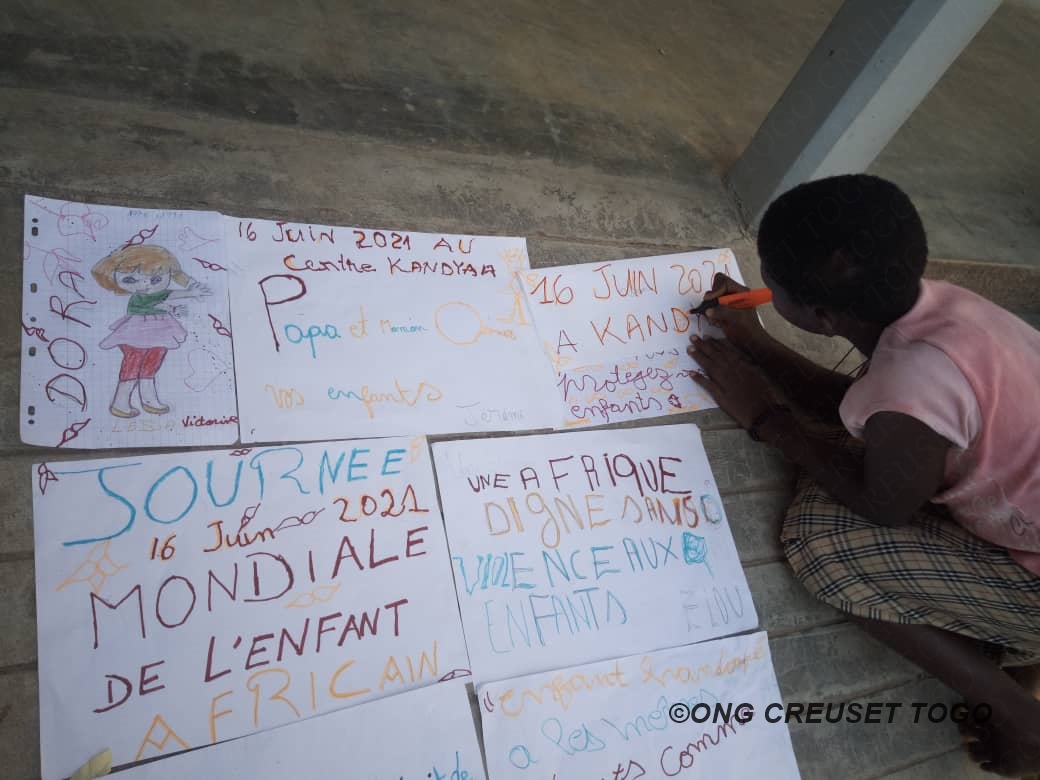 DORA
Victoire
16 Juin 2021 AU
Centre KANDYAA
Papa et Maman
vos enfants
Jérémi
16 JUIN 2021
A KANDY
protégez
enfants
JOURNEE
16 Juin 2021
MONDIALE
DE L'ENFANT
AFRICAIN
UNE AFRIQUE
DIGNE SANS
VIOLENCE AUX
ENFANTS
ELOU
enfant
a les mêmes
comme
©ONG CREUSET TOGO